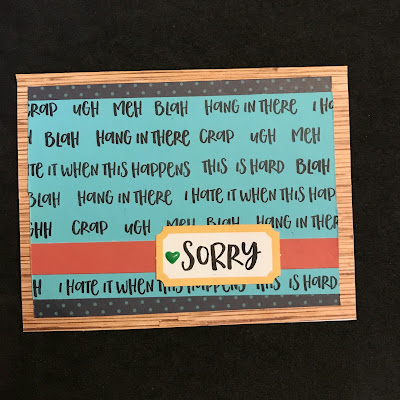 CRAP UGH MEH BLAH HANG IN THERE I HA
BLAH HANG IN THERE CRAP UGH MEH
ATE IT WHEN THIS HAPPENS THIS IS HARD BLAH
BLAH HANG IN THERE I HATE IT WHEN THIS HAP
GHH CRAP UGH MEH BLAH HANG IN THER
SORRY
EH I HATE IT WHEN THIS HAPPENS THIS IS HARD